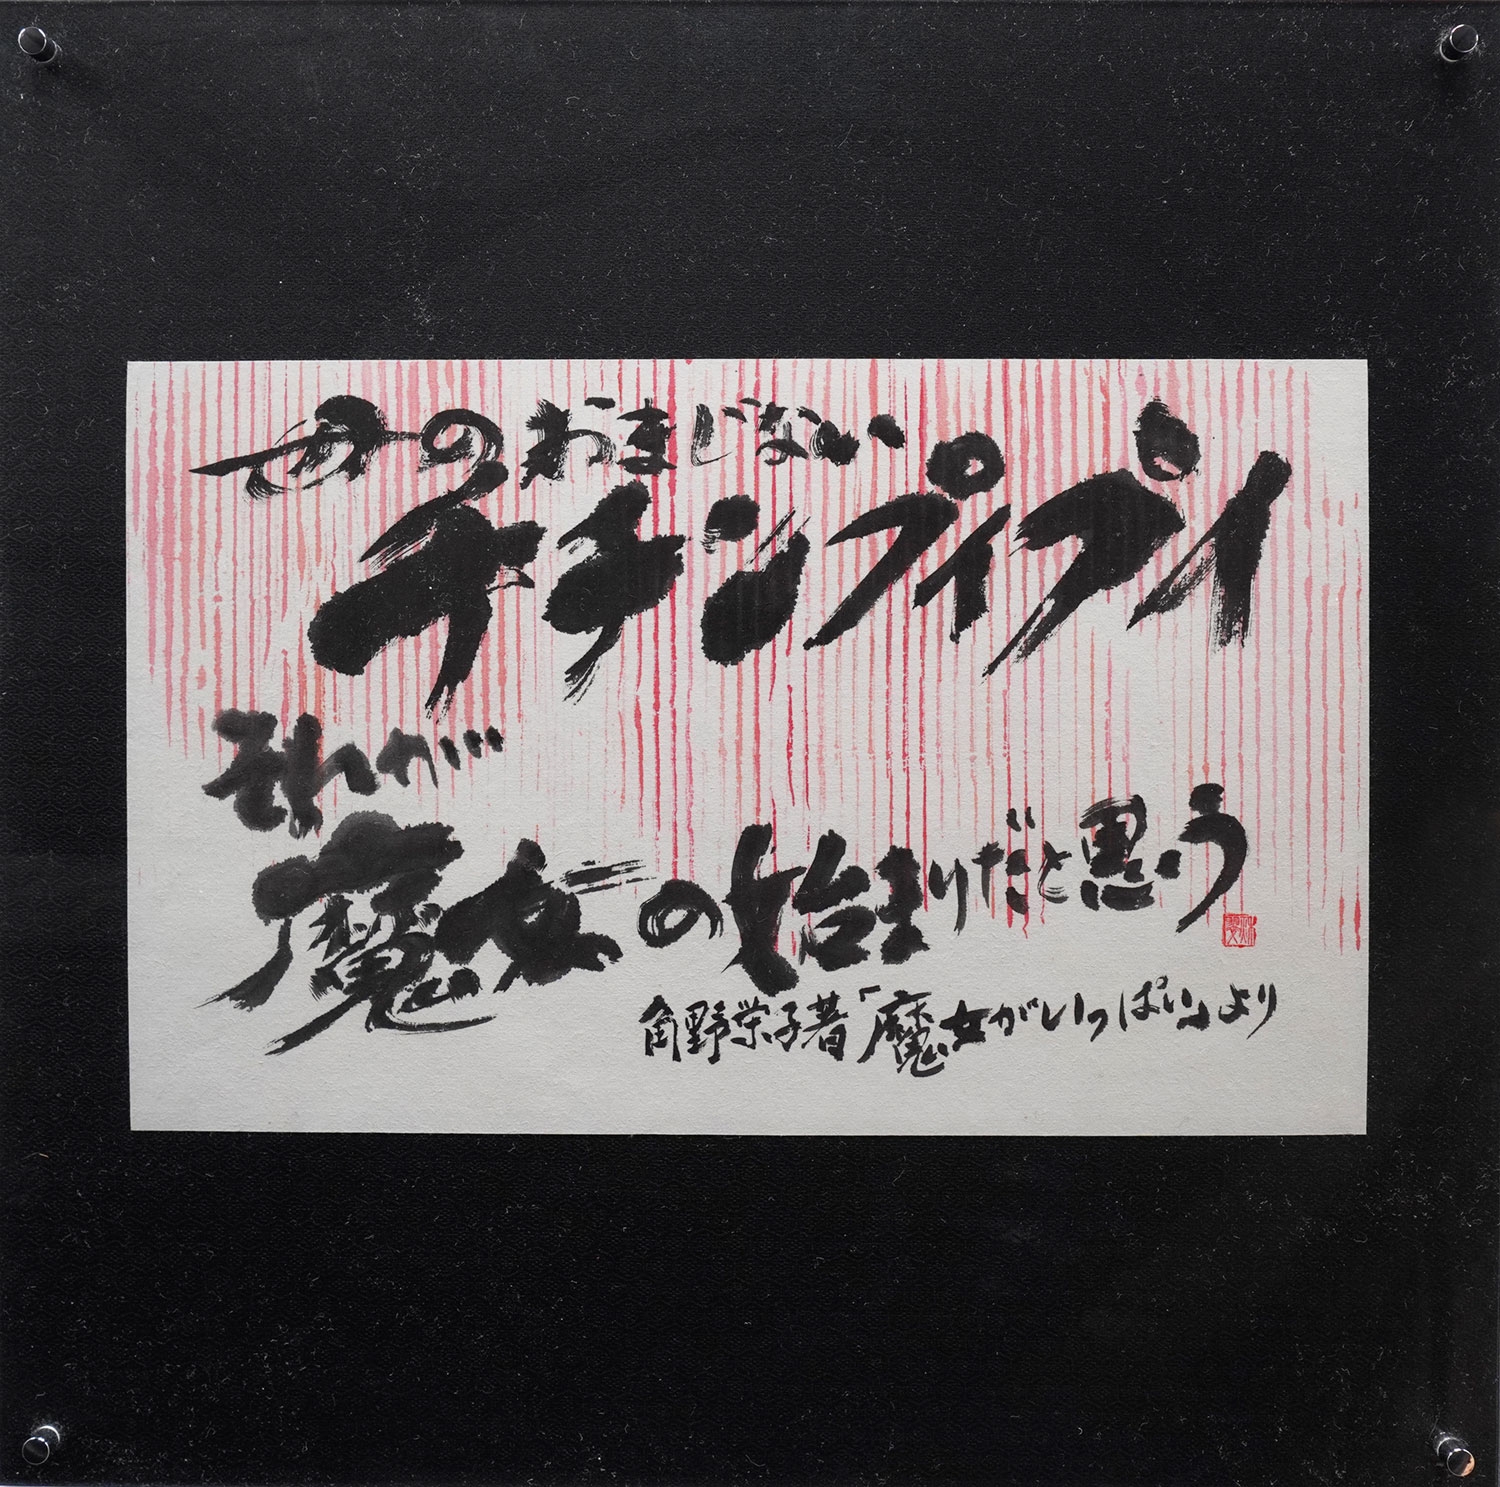 母のおまじない
チチンプイプイ
それが…
魔女の始まりだと思う
角野栄子著「魔女がいっぱい」より